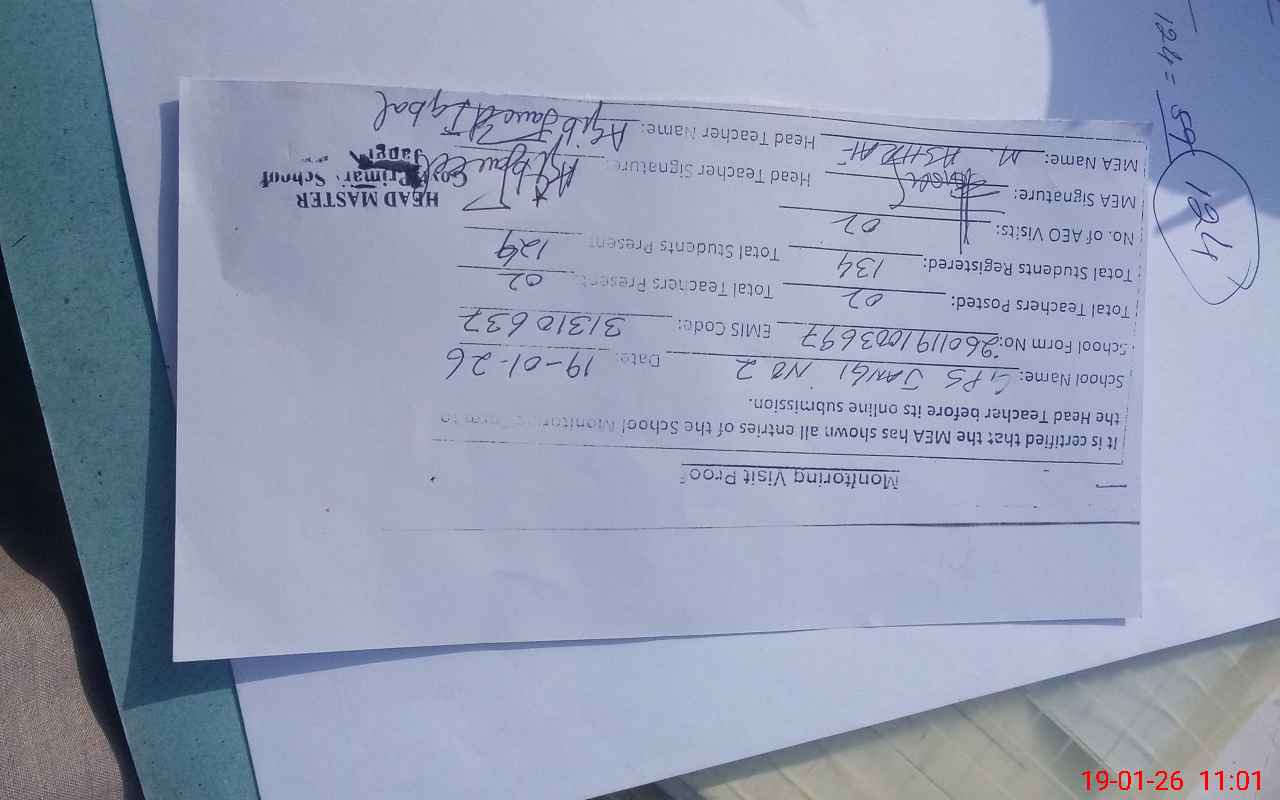 Monitoring Visit Proof
It is certified that the MEA has shown all entries of the School Monitoring Form to
the Head Teacher before its online submission.
School Name: GPS JANGI NO 2 Date: 19-01-26
School Form No: 26011910003697 EMIS Code: 31310637
Total Teachers Posted: 02 Total Teachers Present: 02
Total Students Registered: 134 Total Students Present 124
No. of AEO Visits: 02
MEA Signature: Head Teacher Signature:
MEA Name: M. ASHRAF Head Teacher Name: Aqib Javed Iqbal
HEAD MASTER
Govt Primary School
Jangi
124 = 59
124
19-01-26 11:01